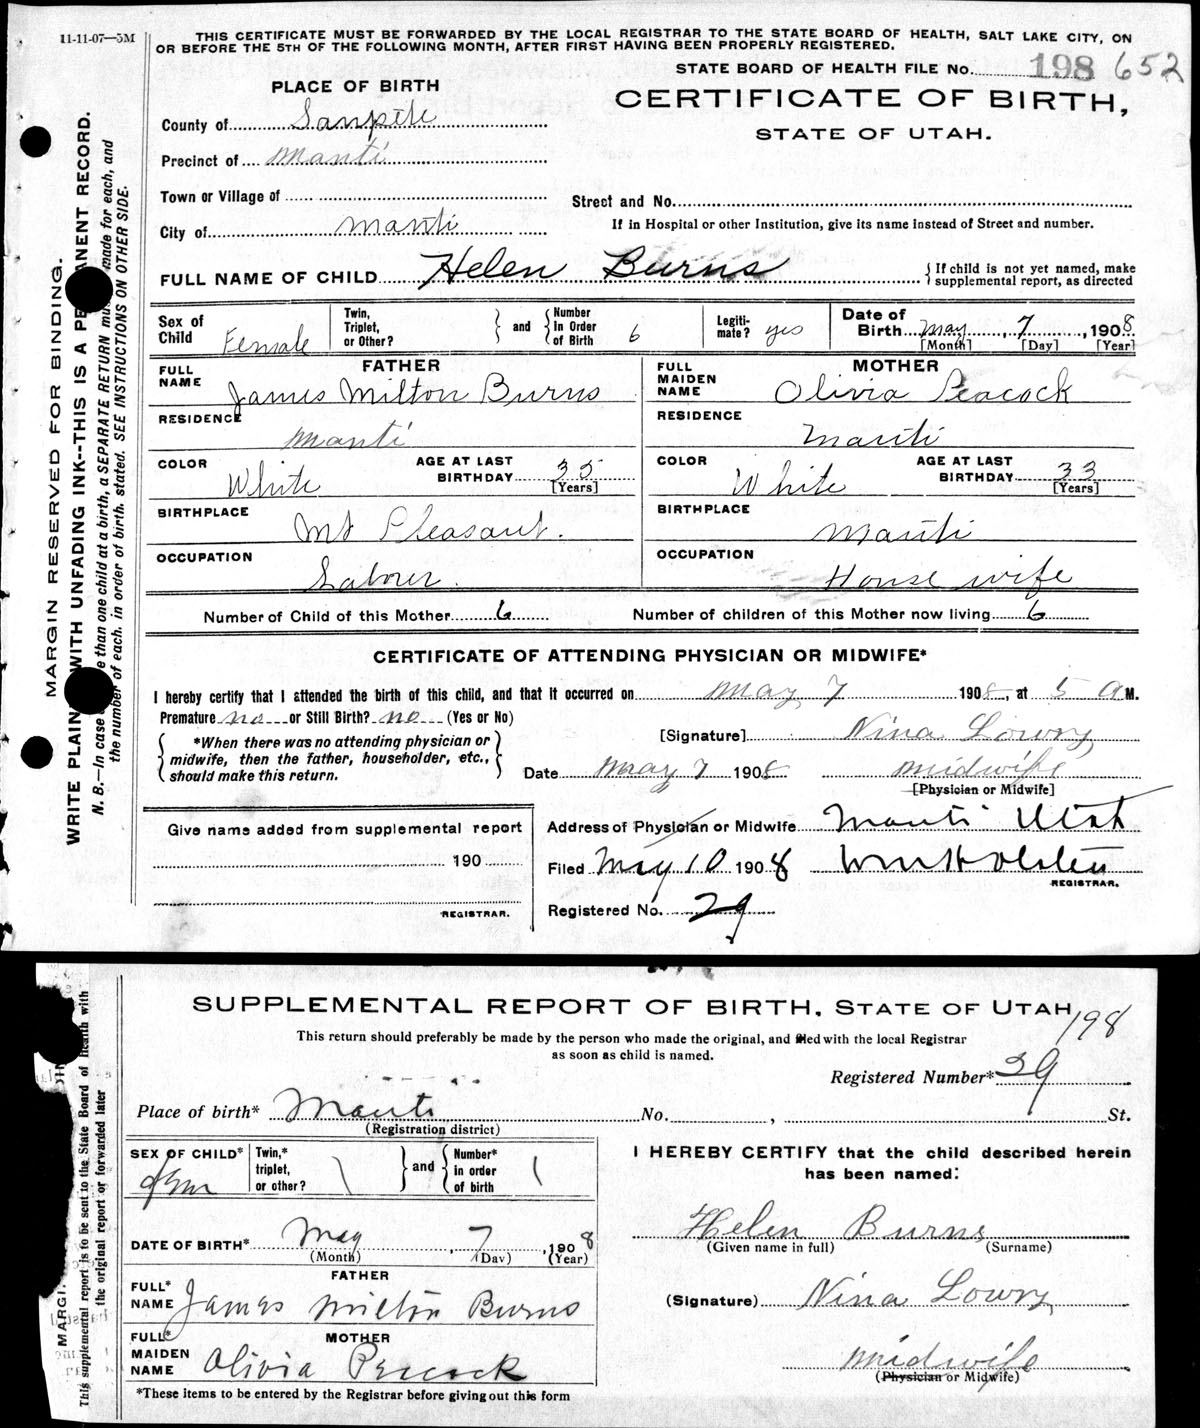 11-11-07—5M
THIS CERTIFICATE MUST BE FORWARDED BY THE LOCAL REGISTRAR TO THE STATE BOARD OF HEALTH, SALT LAKE CITY, ON
OR BEFORE THE 5TH OF THE FOLLOWING MONTH, AFTER FIRST HAVING BEEN PROPERLY REGISTERED.
STATE BOARD OF HEALTH FILE No. 198 652
PLACE OF BIRTH
CERTIFICATE OF BIRTH,
STATE OF UTAH.
County of Sanpete
Precinct of Manti
Town or Village of
Street and No.
City of Manti
If in Hospital or other Institution, give its name instead of Street and number.
FULL NAME OF CHILD Helen Burns
If child is not yet named, make
supplemental report, as directed
Sex of Child Female
Twin, Triplet, or Other?
and
Number In Order of Birth 6
Legiti-mate? yes
Date of Birth May 7, 1908
[Month] [Day] [Year]
FATHER
FULL NAME James Milton Burns
RESIDENCE Manti
COLOR White
AGE AT LAST BIRTHDAY 35
[Years]
BIRTHPLACE Mt Pleasant.
OCCUPATION Labour.
MOTHER
FULL MAIDEN NAME Olivia Peacock
RESIDENCE Manti
COLOR White
AGE AT LAST BIRTHDAY 33
[Years]
BIRTHPLACE Manti
OCCUPATION House wife
Number of Child of this Mother 6 Number of children of this Mother now living 6
CERTIFICATE OF ATTENDING PHYSICIAN OR MIDWIFE*
I hereby certify that I attended the birth of this child, and that it occurred on May 7 1908, at 5 A M.
Premature no or Still Birth? no (Yes or No)
*When there was no attending physician or
midwife, then the father, householder, etc.,
should make this return.
[Signature] Nina Lowry
Date May 7 1908 Midwife
[Physician or Midwife]
Give name added from supplemental report
190
REGISTRAR.
Address of Physician or Midwife Manti Utah
Filed May 10 1908 Wm H Olsten
REGISTRAR.
Registered No. 29
MARGIN RESERVED FOR BINDING.
WRITE PLAIN WITH UNFADING INK--THIS IS A PE ANENT RECORD.
N. B.—In case e than one child at a birth, a SEPARATE RETURN mu made for each, and
the number of each, in order of birth, stated. SEE INSTRUCTIONS ON OTHER SIDE.
SUPPLEMENTAL REPORT OF BIRTH, STATE OF UTAH
198
This return should preferably be made by the person who made the original, and filed with the local Registrar
as soon as child is named.
Registered Number* 39
Place of birth* Manti No. , St.
(Registration district)
SEX OF CHILD* Fem
Twin,* triplet, or other?
and
Number* in order of birth
DATE OF BIRTH* May, 7, 1908
(Month) (Day) (Year)
FATHER
FULL* NAME James Milton Burns
MOTHER
FULL* MAIDEN NAME Olivia Peacock
*These items to be entered by the Registrar before giving out this form
I HEREBY CERTIFY that the child described herein
has been named:
Helen Burns
(Given name in full) (Surname)
(Signature) Nina Lowry
Midwife
(Physician or Midwife)
This supplemental report is to be sent to the State Board of Health with
the original report or forwarded later